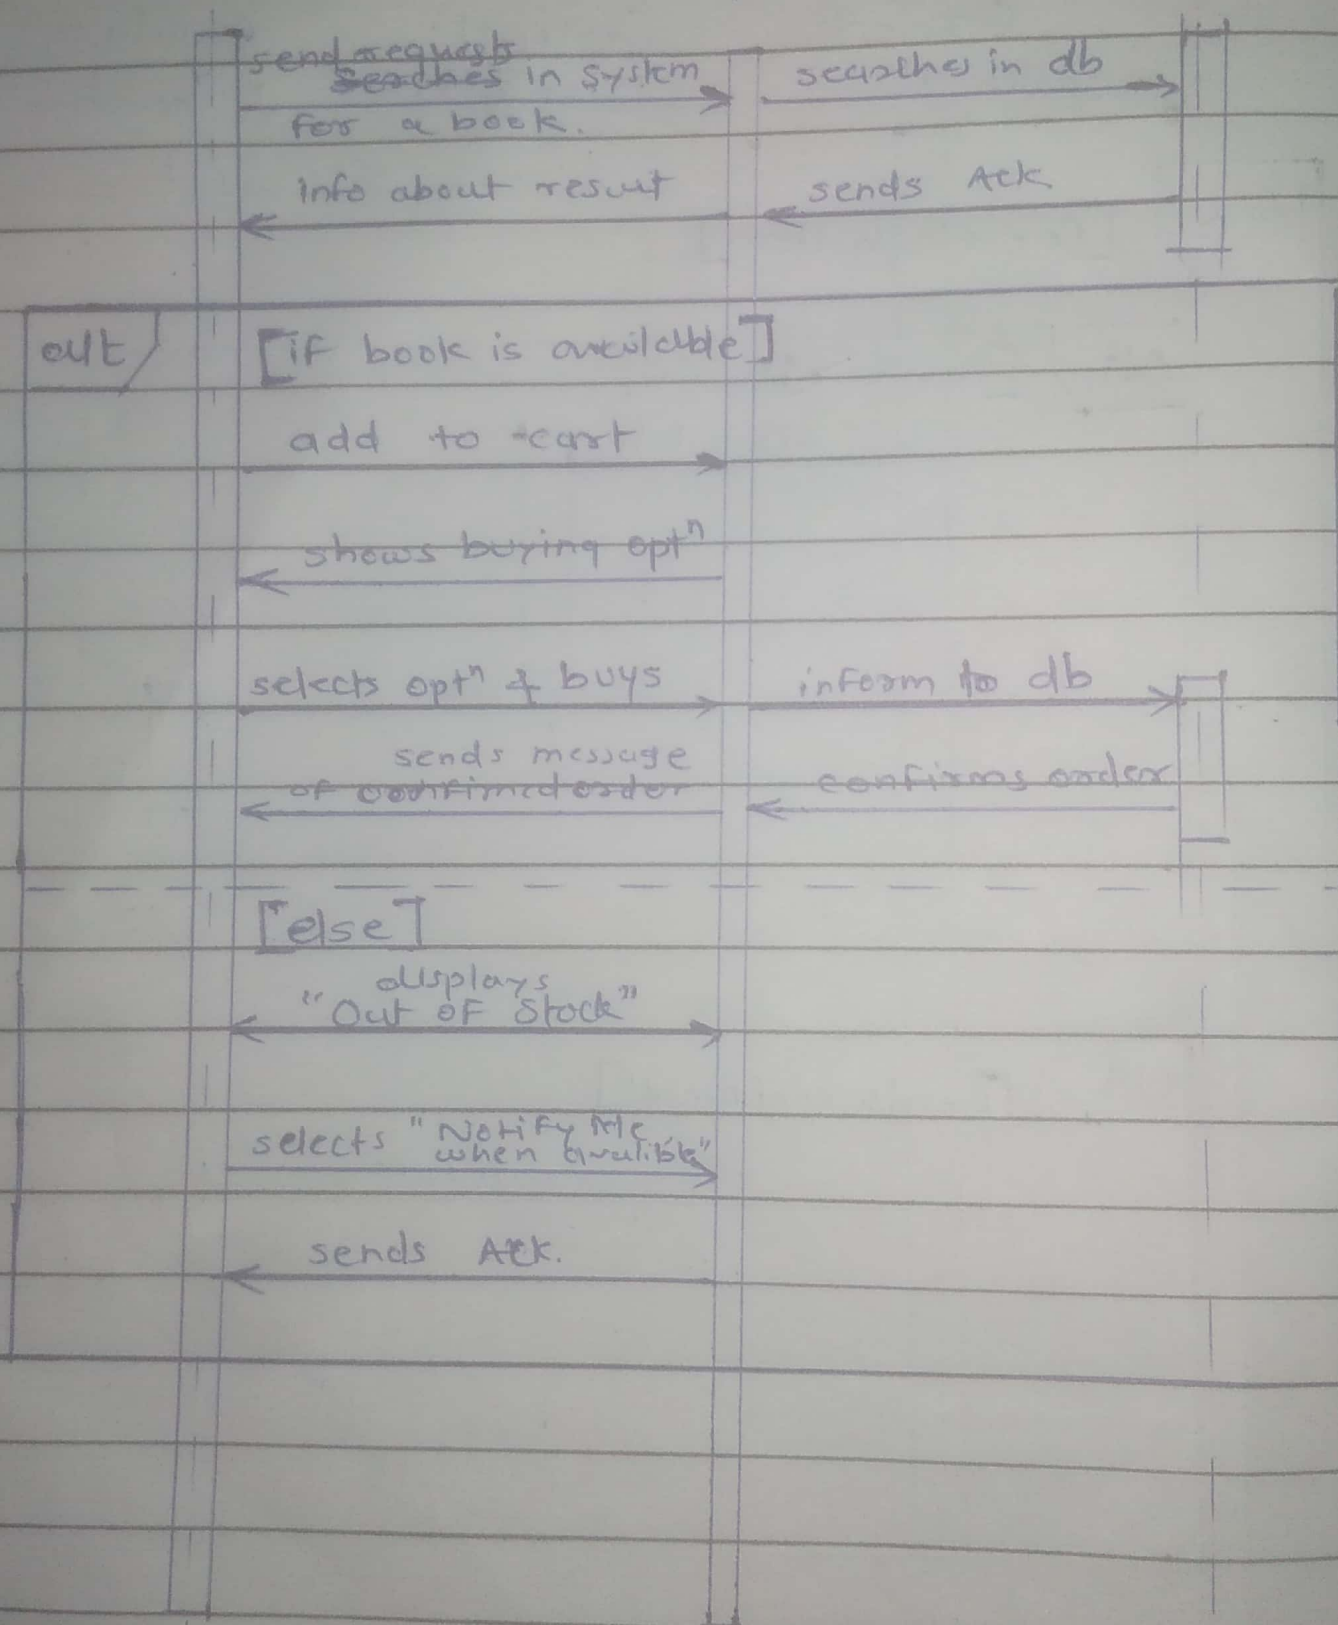 send requests
Searches in System searches in db
for a book.
info about result sends Ack
alt [if book is available]
add to cart
shows buying optⁿ
selects optⁿ & buys inform to db
sends message
of confirmed order confirms order
[else]
displays
"Out OF Stock"
selects "Notify Me
when avalible"
sends Ack.